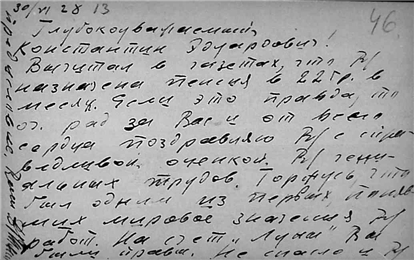 30/VI 28 13
46.
Глубокоуважаемый
Константин Эдуардович!
Вычитал в газетах, что В/
назначена пенсия в 225 р. в
месяц. Если это правда, то
оч. рад за Вас и от всего
сердца поздравляю В/ с спра-
ведливой оценкой В/ гени-
альных трудов. Горжусь, что
был одним из первых, поняв-
ших мировое значения В/
работ. На счет "Луны" Вы
были правы. Не спасло и В/